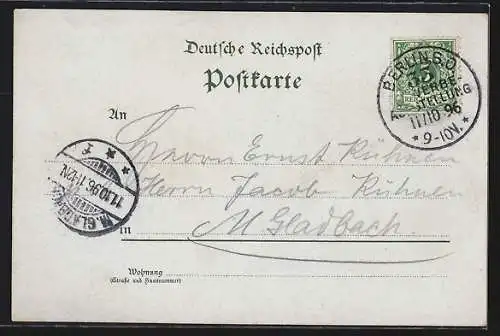 Deutsche Reichspost
Postkarte
An
Herrn Ernst Kühnen
Herrn Jacob Kühnen
in M Gladbach.
Wohnung
(Straße und Hausnummer)
BERLIN S.O.
GEWERBE-
AUSSTELLUNG
11/10 96
* 9-10V. *
5
M. GLADBACH
11.10.96. 11-12N.
* * f